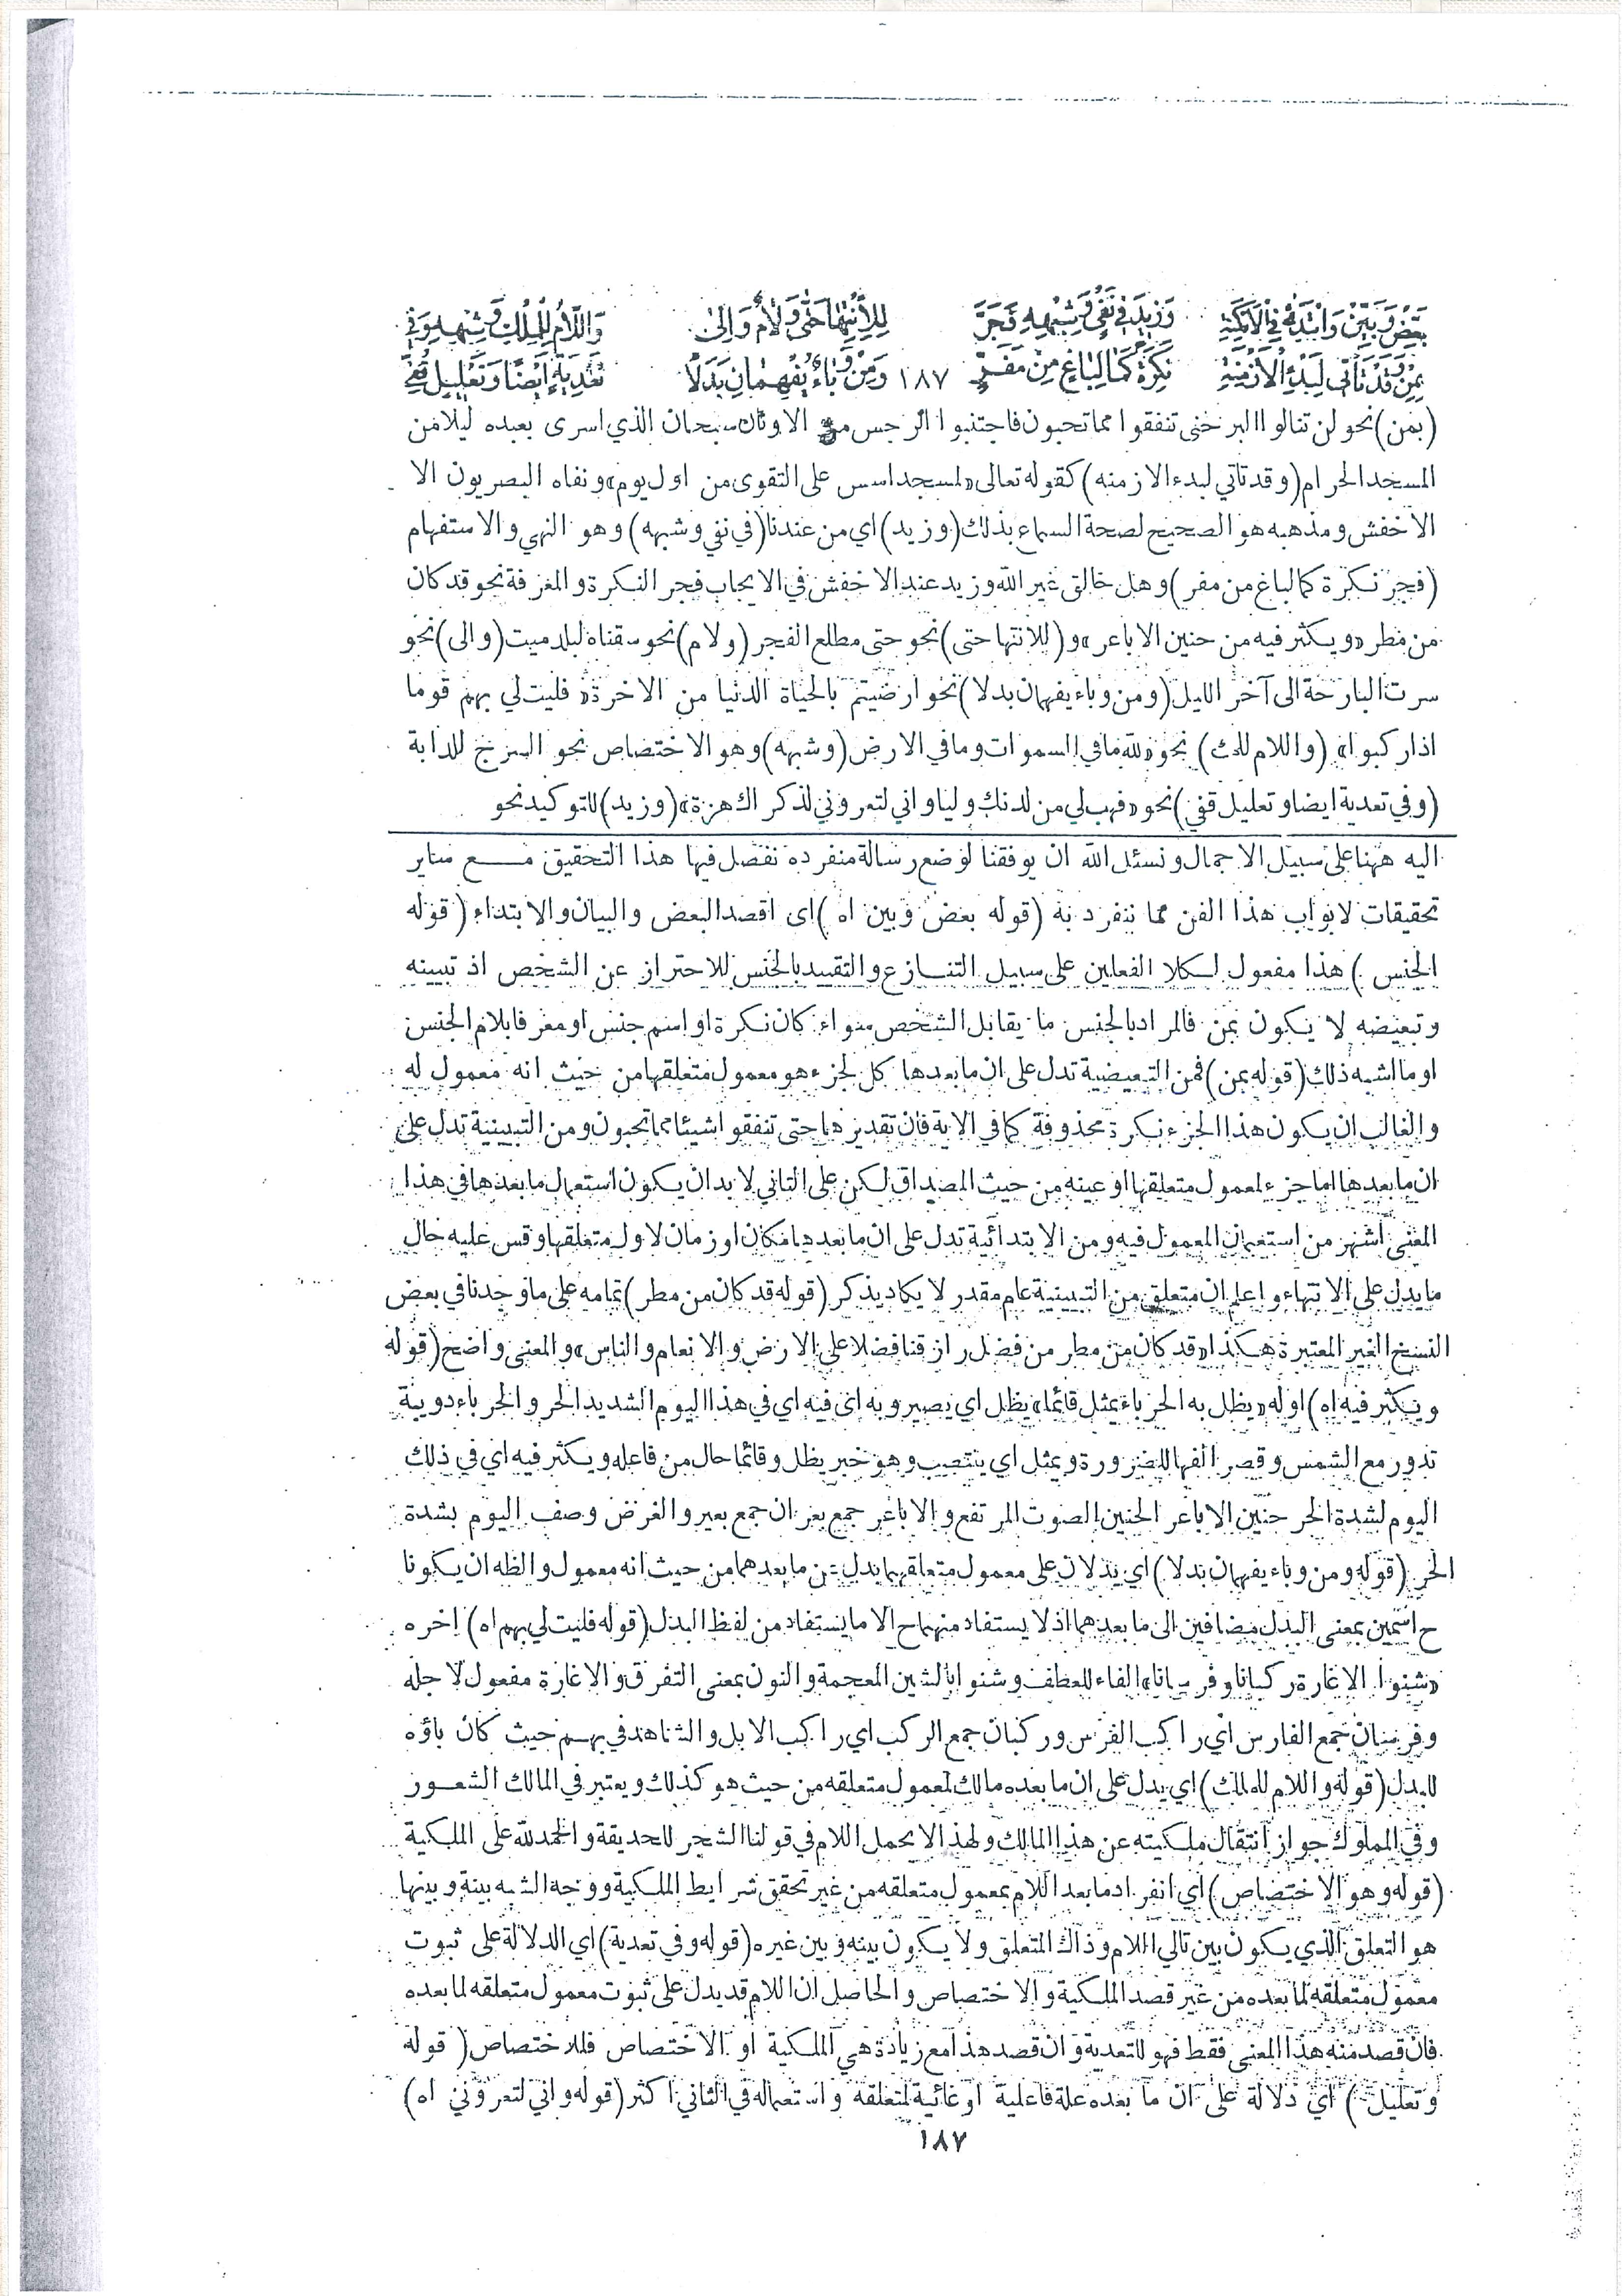 بَعِّضْ وَبَيِّنْ وَابْتَدِئْ فِي الْأَمْكِنَةِ وَزِيدَ فِي نَفْيٍ وَشِبْهِهِ فَجَرَّ لِلِانْتِهَا حَتَّى وَلَامٌ وَإِلَى وَاللَّامُ لِلْمِلْكِ وَشِبْهِهِ وَفِي
بِمِنْ وَقَدْ تَأْتِي لِبَدْءِ الْأَزْمِنَةِ نَكِرَةً كَمَا لِبَاغٍ مِنْ مَفَرٍّ ١٨٧ وَمِنْ وَبَاءٌ يُفْهِمَانِ بَدَلًا تَعْدِيَةٍ أَيْضًا وَتَعْلِيلٍ قُفِي
(بمن) نحو لن تنالوا البر حتى تنفقوا مما تحبون فاجتنبوا الرجس من الاوثان سبحان الذي اسرى بعبده ليلا من
المسجد الحرام (وقد تاتي لبدء الازمنه) كقوله تعالى «لمسجد اسس على التقوى من اول يوم» ونفاه البصريون الا
الاخفش ومذهبه هو الصحيح لصحة السماع بذلك (وزيد) اي من عندنا (في نفي وشبهه) وهو النهي والاستفهام
(فجر نكرة كما لباغ من مفر) وهل خالق غير الله وزيد عند الاخفش في الايجاب فجر النكرة والمعرفة نحو قد كان
من مطر «ويكثر فيه من حنين الاباعر» و (للانتها حتى) نحو حتى مطلع الفجر (ولام) نحو سقناه لبلد ميت (والى) نحو
سرت البارحة الى آخر الليل (ومن وباء يفهمان بدلا) نحو ارضيتم بالحياة الدنيا من الاخرة «فليت لي بهم قوما
اذا ركبوا» (واللام للملك) نحو «لله ما في السموات وما في الارض (وشبهه) وهو الاختصاص نحو السرج للدابة
(وفي تعدية ايضا وتعليل قفي) نحو «فهب لي من لدنك وليا واني لتعروني لذكراك هزة» (وزيد) للتوكيد نحو
اليه ههنا على سبيل الاجمال ونسئل الله ان يوفقنا لوضع رسالة منفرده نفصل فيها هذا التحقيق مع ساير
تحقيقات لابواب هذا الفن مما ننفرد به (قوله بعض وبين اه) اى اقصد البعض والبيان والابتداء (قوله
الجنس) هذا مفعول لكلا الفعلين على سبيل التنازع والتقييد بالجنس للاحتراز عن الشخص اذ تبيينه
وتبعيضه لا يكون بمن فالمراد بالجنس ما يقابل الشخص سواء كان نكرة او اسم جنس او معرفا بلام الجنس
او ما اشبه ذلك (قوله بمن) فمن التبعيضية تدل على ان ما بعدها كل لجزء هو معمول متعلقها من حيث انه معمول له
والغالب ان يكون هذا الجزء نكرة محذوفة كما في الاية فان تقديرها حتى تنفقوا شيئا مما تحبون ومن التبيينية تدل على
ان ما بعدها اما جزء لمعمول متعلقها او عينه من حيث المصداق لكن على الثاني لا بد ان يكون استعمال ما بعدها في هذا
المعنى اشهر من استعمال المعمول فيه ومن الابتدائية تدل على ان ما بعدها مكان او زمان لاول متعلقها وقس عليه حال
ما يدل على الانتهاء واعلم ان متعلق من التبيينية عام مقدر لا يكاد يذكر (قوله قد كان من مطر) تمامه على ما وجدنا في بعض
النسخ الغير المعتبرة هكذا «قد كان من مطر من فضل رازقنا فضلا على الارض والانعام والناس» والمعنى واضح (قوله
ويكثر فيه اه) اوله «يظل به الحرباء يمثل قائما» يظل اي يصير وبه اى فيه اي في هذا اليوم الشديد الحر والحرباء دويبة
تدور مع الشمس وقصر الفها للضرورة ويمثل اي ينتصب وهو خبر يظل وقائما حال من فاعله ويكثر فيه اي في ذلك
اليوم لشدة الحر حنين الاباعر الحنين الصوت المرتفع والاباعر جمع بعران جمع بعير والغرض وصف اليوم بشدة
الحر (قوله ومن وباء يفهمان بدلا) اي يدلان على معمول متعلقهما بدل عن ما بعدهما من حيث انه معمول والظه ان يكونا
ح اسمين بمعنى البدل مضافين الى ما بعدهما اذ لا يستفاد منهما ح الا ما يستفاد من لفظ البدل (قوله فليت لي بهم اه) اخره
«شنوا الاغارة ركبانا وفرسانا» الفاء للعطف وشنوا بالشين المعجمة والنون بمعنى التفرق والاغارة مفعول لاجله
وفرسان جمع الفارس اي راكب الفرس وركبان جمع الركب اي راكب الابل والشاهد في بهم حيث كان باؤه
للبدل (قوله واللام للملك) اي يدل على ان ما بعده مالك لمعمول متعلقه من حيث هو كذلك ويعتبر في المالك الشعور
وفي المملوك جواز انتقال ملكيته عن هذا المالك ولهذا لا يحمل اللام في قولنا الشجر للحديقة والحمد لله على الملكية
(قوله وهو الاختصاص) اي انفراد ما بعد اللام بمعمول متعلقه من غير تحقق شرايط الملكية ووجه الشبه بينه وبينها
هو التعلق الذي يكون بين تالي اللام وذاك المتعلق ولا يكون بينه وبين غيره (قوله وفي تعدية) اي الدلالة على ثبوت
معمول متعلقه لما بعده من غير قصد الملكية والاختصاص والحاصل ان اللام قد يدل على ثبوت معمول متعلقه لما بعده
فان قصد منه هذا المعنى فقط فهو للتعدية وان قصد هذا مع زيادة هي الملكية او الاختصاص فللاختصاص (قوله
وتعليل) اي دلالة على ان ما بعده علة فاعلية او غائية لمتعلقه واستعماله في الثاني اكثر (قوله واني لتعروني اه)
١٨٧